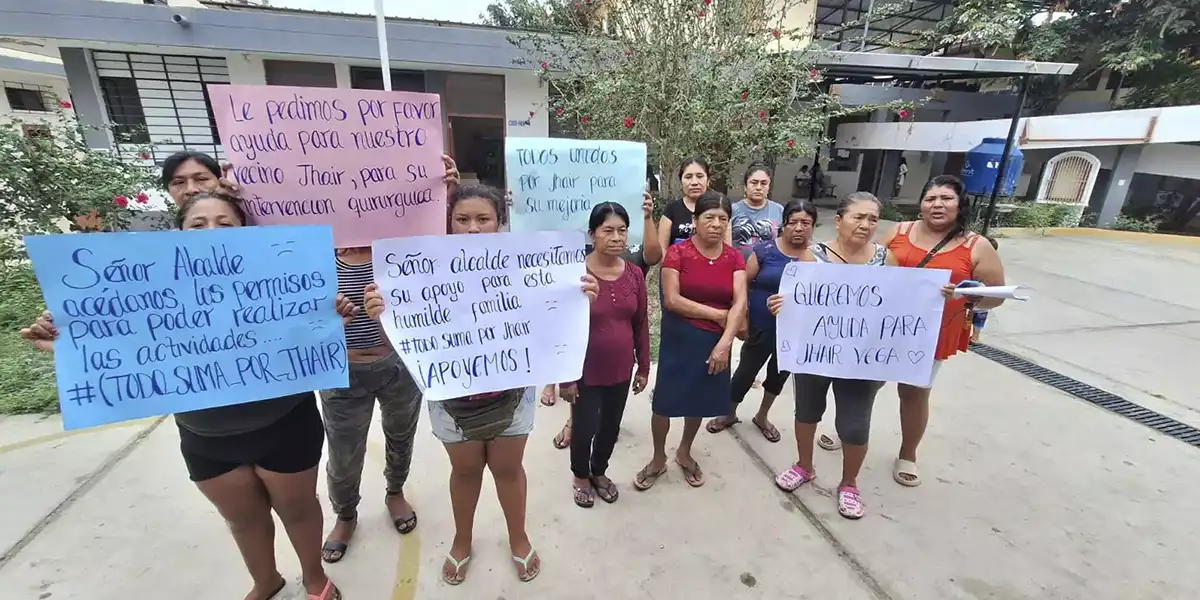 Le pedimos por favor
ayuda para nuestro
vecino Jhair, para su
intervencion quirurguica.
TODOS UNIDOS
por Jhair para
su mejoria
Señor Alcalde
acédanos los permisos
para poder realizar
las actividades....
#(TODO_SUMA_POR_JHAIR)
Señor alcalde necesitamos
su apoyo para esta
humilde familia
#TODO SUMA POR Jhair
¡APOYEMOS!
QUEREMOS
AYUDA PARA
JHAIR VEGA